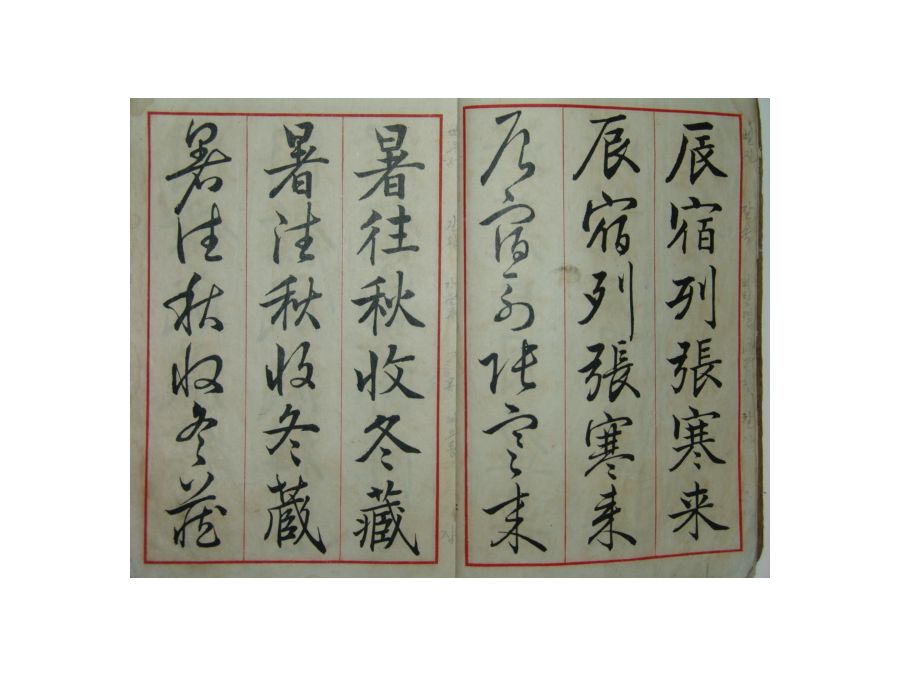 辰宿列張寒来
辰宿列張寒来
辰宿列張寒来
暑往秋收冬藏
暑往秋收冬蔵
暑往秋收冬藏